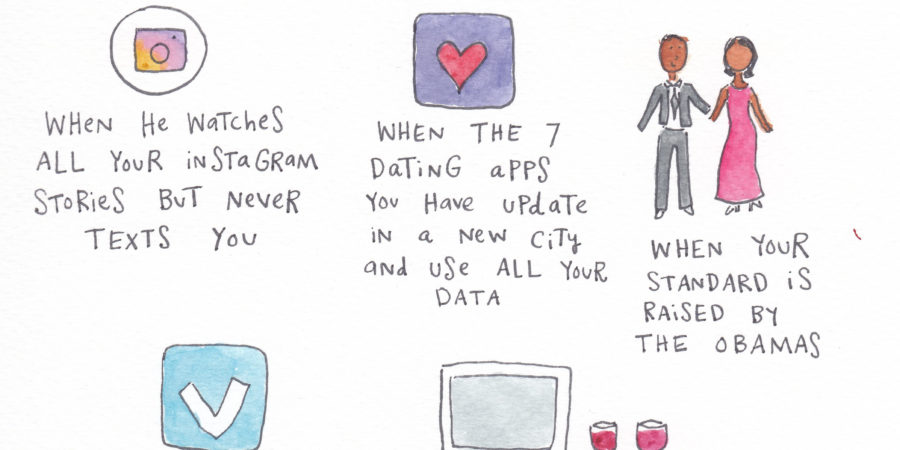 WHEN HE WatcHeS
ALL YOUR iNStaGRAM
StoRieS BUT NeveR
TEXTS YOU
WHEN THE 7
DatiNG aPPS
YOU Have UPdate
iN a NeW CiTy
aNd USe ALL YOUR
DATA
WHEN YOUR
STANDARD iS
RAiSED BY
THE OBAMAS
V